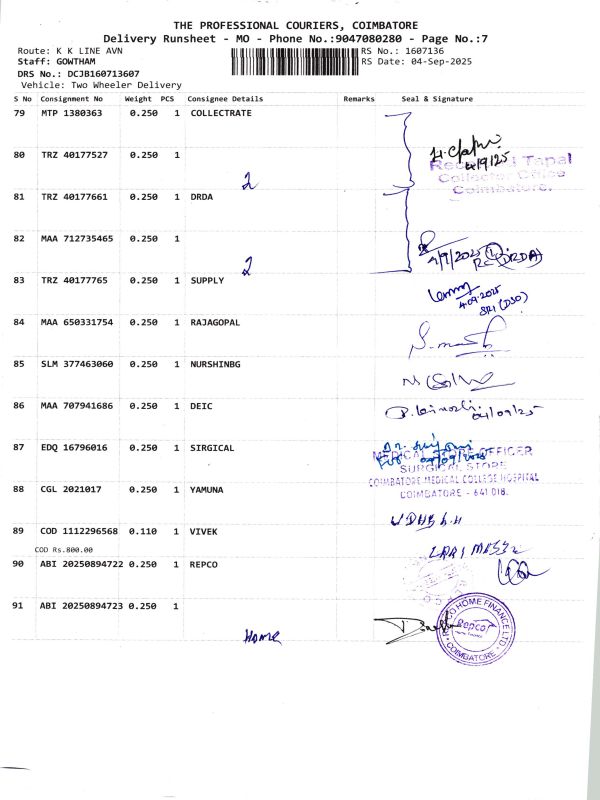 THE PROFESSIONAL COURIERS, COIMBATORE
Delivery Runsheet - MO - Phone No.:9047080280 - Page No.:7
Route: K K LINE AVN
RS No.: 1607136
Staff: GOWTHAM
RS Date: 04-Sep-2025
DRS No.: DCJB160713607
Vehicle: Two Wheeler Delivery
S No Consignment No Weight PCS Consignee Details Remarks Seal & Signature
79 MTP 1380363 0.250 1 COLLECTRATE
4/9/25
80 TRZ 40177527 0.250 1
Received Tapal
Collector Office
Coimbatore.
2
81 TRZ 40177661 0.250 1 DRDA
82 MAA 712735465 0.250 1
4/9/2025
(DRDA)
2
83 TRZ 40177765 0.250 1 SUPPLY
4.09.2025
SRI (DSO)
84 MAA 650331754 0.250 1 RAJAGOPAL
85 SLM 377463060 0.250 1 NURSHINBG
86 MAA 707941686 0.250 1 DEIC
04/09/25
87 EDQ 16796016 0.250 1 SIRGICAL
MEDICAL STORE OFFICER
SURGICAL STORE
COIMBATORE MEDICAL COLLEGE HOSPITAL
COIMBATORE - 641 018.
88 CGL 2021017 0.250 1 YAMUNA
89 COD 1112296568 0.110 1 VIVEK
COD Rs.800.00
90 ABI 20250894722 0.250 1 REPCO
91 ABI 20250894723 0.250 1
REPCO HOME FINANCE LTD
Repco
COIMBATORE
Home